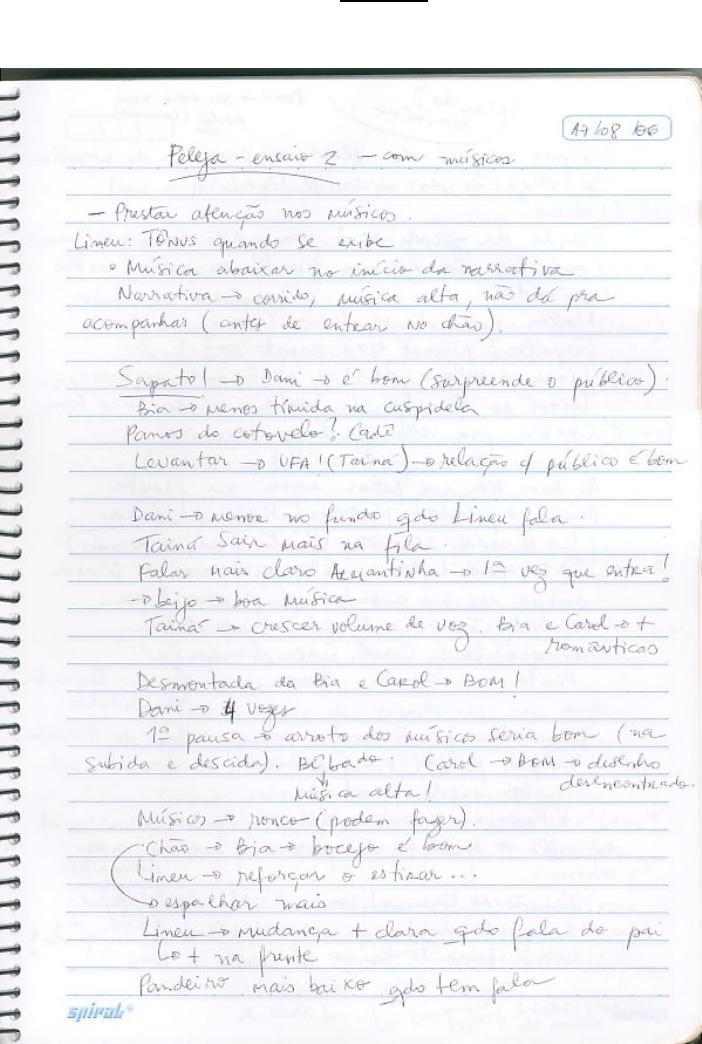 17/08/06
Peleja - ensaio 2 - com músicos
- Prestar atenção nos músicos.
Lineu: TÔNUS quando se exibe
• Música abaixar no início da narrativa
Narrativa → corrido, música alta, não dá pra
acompanhar (antes de entrar no chão).
Sapato! → Dani → é bom (surpreende o público).
Bia → menos tímida na cuspidela
Panos do cotovelo? Cadê
Levantar → UFA! (Tainá) → relação c/ público é bom
Dani → menor no fundo qdo Lineu fala.
Tainá sair mais na fila.
Falar mais claro Armantinha → 1ª vez que entra!
→ beijo → boa música
Tainá → crescer volume de voz. Bia e Carol → +
românticas
Desmontada da Bia e Carol → BOM!
Dani → 4 vozes
1ª pausa → arroto dos músicos seria bom (na
subida e descida). Bêbado: Carol → BOM → desenho
desencontrado.
música alta!
Músicos → ronco (podem fazer).
Chão → Bia → bocejo é bom
Lineu → reforçar o estirar...
→ espalhar mais
Lineu → mudança + clara qdo fala do pai
↳ + na frente
Pandeiro mais baixo qdo tem fala
spiral